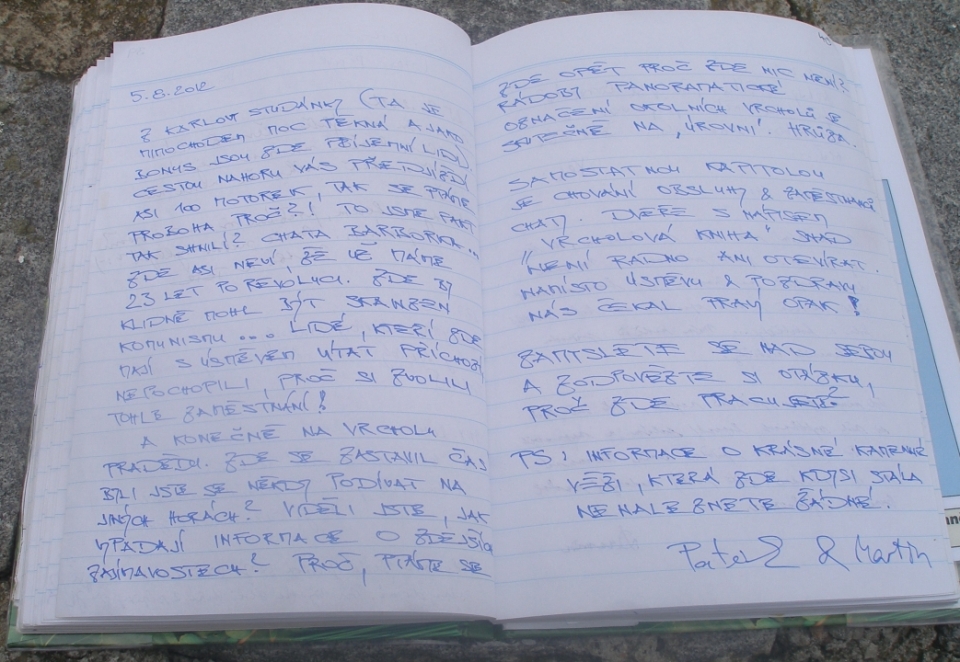 5.8.2012
Z KARLOVY STUDÁNKY (TA JE
MIMOCHODEM MOC PĚKNÁ A JAKO
BONUS JSOU ZDE PŘÍJEMNÍ LIDÉ)
CESTOU NAHORU VÁS PŘEDJÍŽDÍ
ASI 100 MOTOREK, TAK SE PTÁME
PROBOHA, PROČ?! TO JSME FAKT
TAK SHNILÍ? CHATA BARBORKA...
ZDE ASI NEVÍ, ŽE UŽ MÁME
23 LET PO REVOLUCI. ZDE BY
KLIDNĚ MOHL BÝT SKANZEN
KOMUNISMU... LIDÉ, KTEŘÍ ZDE
MAJÍ S ÚSMĚVEM VÍTAT PŘÍCHOZÍ
NEPOCHOPILI, PROČ SI ZVOLILI
TOHLE ZAMĚSTNÁNÍ!
A KONEČNĚ NA VRCHOLU
PRADĚDU. ZDE SE ZASTAVIL ČAS
BYLI JSTE SE NĚKDY PODÍVAT NA
JINÝCH HORÁCH? VIDĚLI JSTE, JAK
VYPADAJÍ INFORMACE O ZDEJŠÍCH
ZAJÍMAVOSTECH? PROČ, PTÁTE SE
ZDE OPĚT PROČ ZDE NIC NENÍ?
RÁDOBY PANORAMATICKÉ
OZNAČENÍ OKOLNÍCH VRCHOLŮ JE
SKUTEČNĚ NA "ÚROVNI". HRŮZA.
SAMOSTATNOU KAPITOLOU
JE CHOVÁNÍ OBSLUHY & ZAMĚSTNANCŮ
CHATY. DVEŘE S NÁPISEM
"VRCHOLOVÁ KNIHA" SNAD
NENÍ RADNO ANI OTEVÍRAT.
NAMÍSTO ÚSMĚVU & POZDRAVU
NÁS ČEKAL PRAVÝ OPAK!
ZAMYSLETE SE NAD SEBOU
A ZODPOVĚZTE SI OTÁZKU,
PROČ ZDE PRACUJETE?
PS: INFORMACE O KRÁSNÉ KAMENNÉ
VĚŽI, KTERÁ ZDE KDYSI STÁLA
NENALEZNETE ŽÁDNÉ.
& Martin